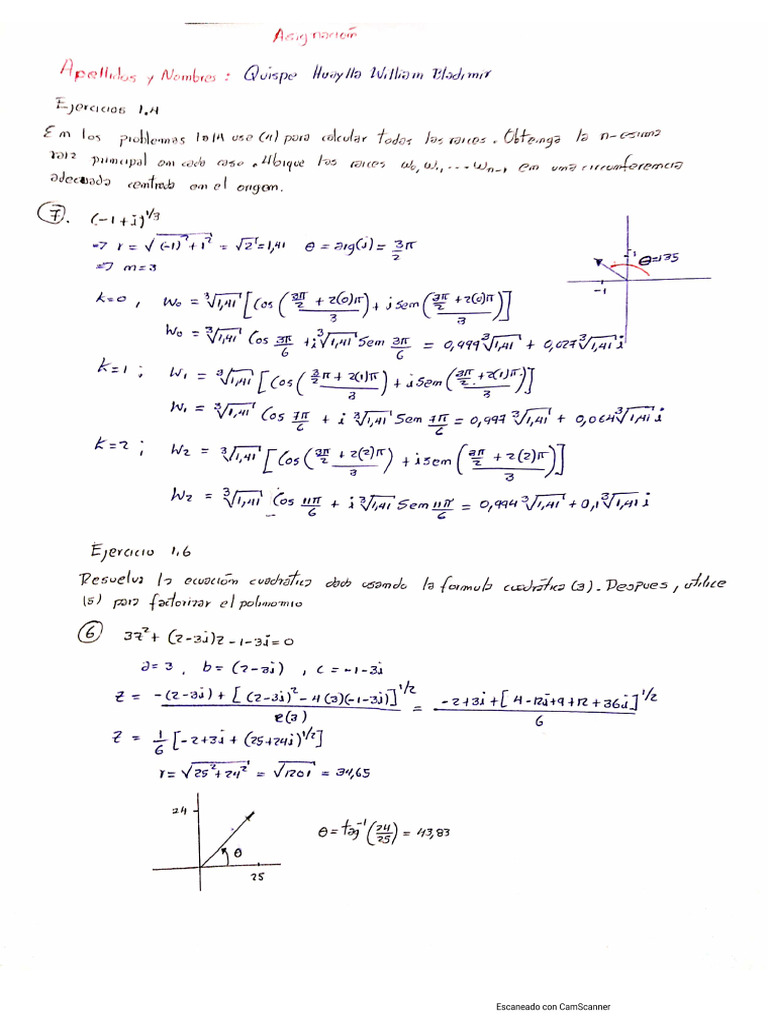 Asignación
Apellidos y Nombres : Quispe Huaylla William Bladimir
Ejercicios 1.4
En los problemas 1al14 use (4) para calcular todas las raíces. Obtenga la n-esima
raiz principal en cada caso. Ubique las raices w₀, w₁, ... wₙ₋₁ en una circunferencia
adecuada centrada en el origen.
7. (-1+i)^1/3
=> r = √((-1)²+1²) = √2 = 1,41 θ = arg(i) = 3π/2
=> m = 3
1
θ=135
-1
k=0 , W₀ = ³√1,41 [Cos((3π/2 + 2(0)π)/3) + i Sem((3π/2 + 2(0)π)/3)]
W₀ = ³√1,41 Cos 3π/6 + i ³√1,41 Sem 3π/6 = 0,999 ³√1,41 + 0,027 ³√1,41 i
k=1 ; W₁ = ³√1,41 [Cos((3/2 π + 2(1)π)/3) + i Sem((3π/2 + 2(1)π)/3)]
W₁ = ³√1,41 Cos 7π/6 + i ³√1,41 Sem 7π/6 = 0,997 ³√1,41 + 0,064 ³√1,41 i
k=2 ; W₂ = ³√1,41 [Cos((3π/2 + 2(2)π)/3) + i sem((3π/2 + 2(2)π)/3)]
W₂ = ³√1,41 Cos 11π/6 + i ³√1,41 Sem 11π/6 = 0,994 ³√1,41 + 0,1 ³√1,41 i
Ejercicio 1.6
Resuelva la ecuación cuadrática dada usando la formula cuadrática (3). Despues, utilice
(5) para factorizar el polinomio
6 3z² + (2-3i)z - 1 - 3i = 0
a = 3 , b = (2-3i) , c = -1-3i
z = (-(2-3i) + [(2-3i)² - 4(3)(-1-3i)]^1/2)/(2(3)) = (-2+3i+[4-12i+9+12+36i]^1/2)/6
z = 1/6 [-2+3i + (25+24i)^1/2]
r = √(25²+24²) = √1201 = 34,65
24
θ
25
θ = tag⁻¹(24/25) = 43,83
Escaneado con CamScanner